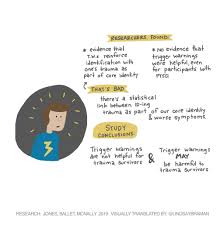 RESEARCHERS FOUND
* evidence that
T.W.s reinforce
identification with
one's trauma as
part of core identity
* NO evidence that
trigger warnings
were helpful, even
for participants with
PTSD
THAT'S BAD
there's a statistical
link between
trauma as part of our core identity
& worse symptoms.
STUDY
CONCLUSIONS
Trigger warnings
are not helpful for
trauma survivors
&
Trigger warnings
MAY
be harmful to
trauma survivors
RESEARCH: JONES, BALLET, MCNALLY 2019 VISUALLY TRANSLATED BY: @LINDSAYBRAMAN